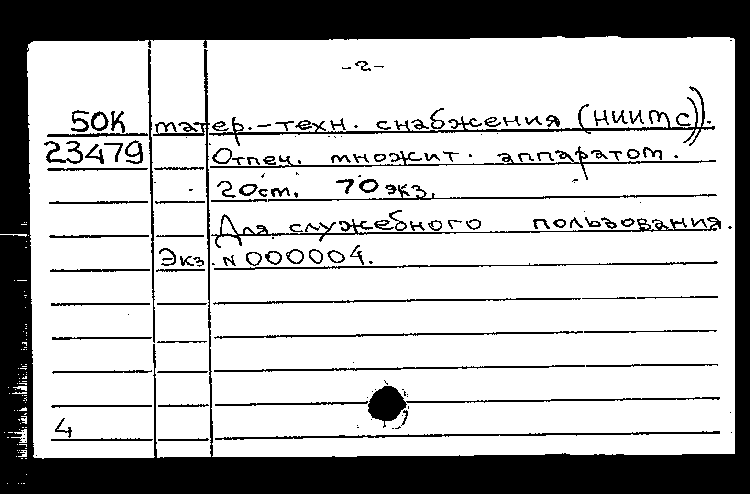 -2-
50К матер.-техн. снабжения (НИИТС)).
23479 Отпеч. множит. аппаратом.
20см. 70 экз.
Для служебного пользования.
Экз. N 000004.
4